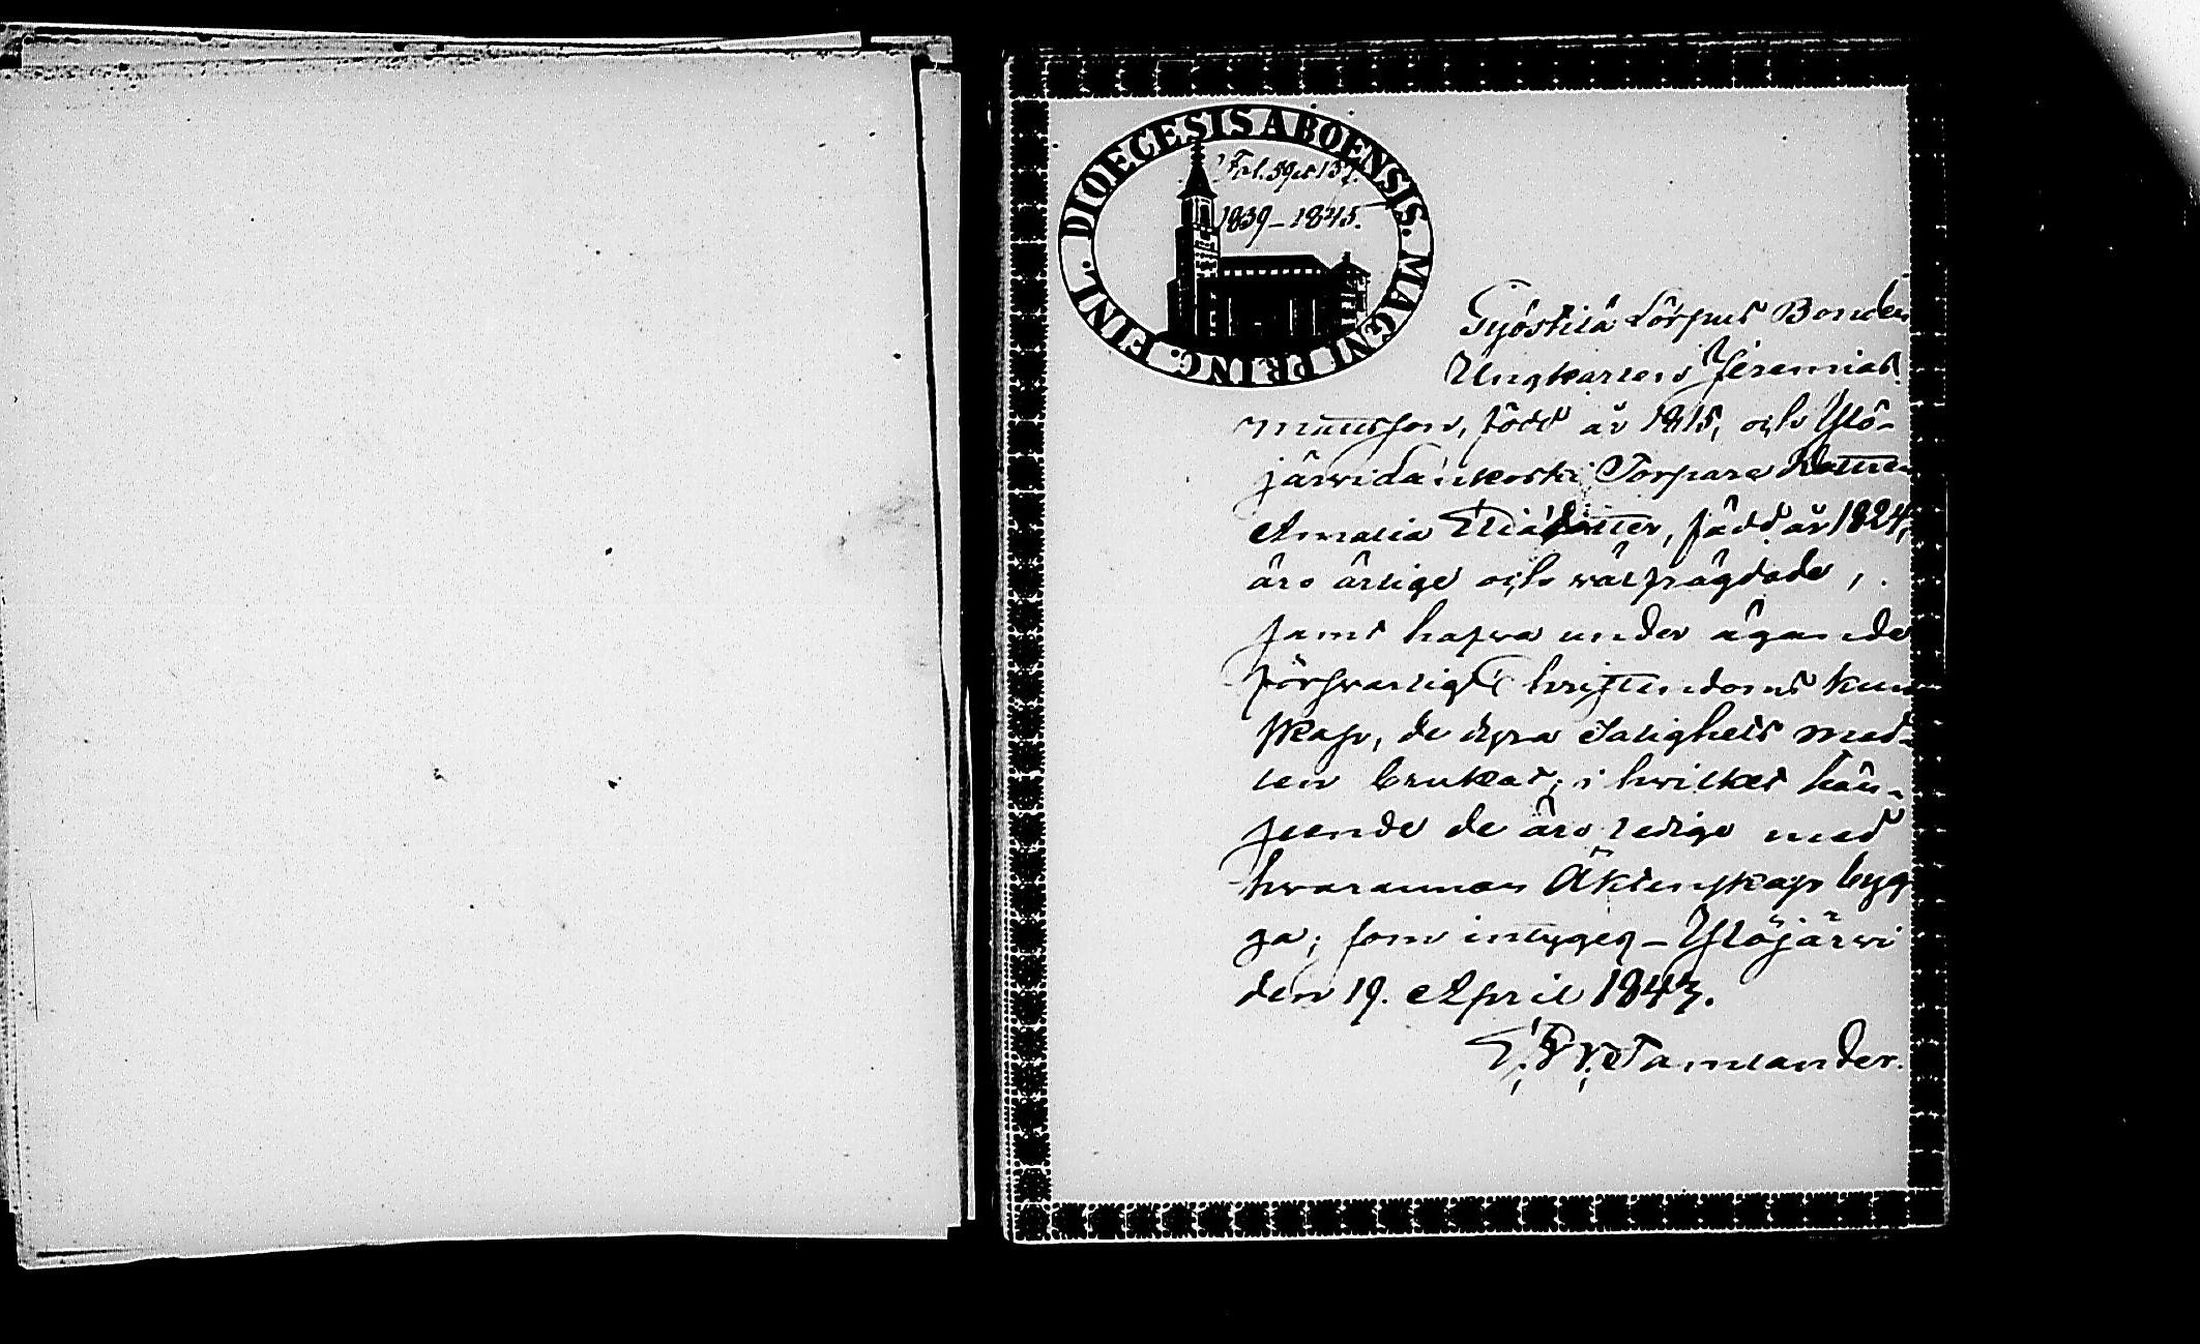 DIOECESIS ABOENSIS. MAGNI PRINC. FINL.
Fol. 59 et 137.
1839–1845.
Gyöstilä Bonden
Ungkarlen Jeremias
född år 1815, och Ylö-
järvi Torpare Dottren
Amalia Eliädotter, född år 1824,
äro ärlige och välfrägdade,
samt hafva under ägande
försvarlig Christendoms kun
skap, de dyra Salighets med-
len brukat; i hvilket hän-
seende de äro ledige med
hvarannan Äktenskap byg
ga; som intygeg – Ylöjärvi
den 19. April 1843.
Tamlander.